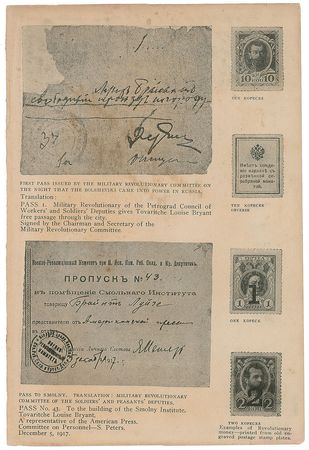 1.
Луизѣ Брайантъ
свободный проѣздъ по городу
FIRST PASS ISSUED BY THE MILITARY REVOLUTIONARY COMMITTEE ON
THE NIGHT THAT THE BOLSHEVIKI CAME INTO POWER IN RUSSIA.
Translation:
PASS 1. Military Revolutionary of the Petrograd Council of
Workers' and Soldiers' Deputies gives Tovaritche Louise Bryant
free passage through the city.
Signed by the Chairman and Secretary of the
Military Revolutionary Committee.
10 10
TEN KOPECKS
Имѣетъ
хожденіе
наравнѣ съ
размѣнной
серебряной
монетой.
TEN KOPECKS
REVERSE
1 1
ONE KOPECK
2 2
TWO KOPECKS
Examples of Revolutionary
money—printed from old en-
graved postage stamp plates.
Военно-Революціонный Комитетъ при П.
ПРОПУСКЪ № 43.
въ помѣщеніе Смольнаго Института
товарищу Брайантъ Луизѣ
представителю отъ Американской прессы
Личнаго Состава
PASS TO SMOLNY. TRANSLATION: MILITARY REVOLUTIONARY
COMMITTEE OF THE SOLDIERS' AND PEASANTS' DEPUTIES.
PASS No. 43. To the building of the Smolny Institute.
Tovaritche Louise Bryant.
A representative of the American Press.
Committee on Personnel—S. Peters.
December 5, 1917.